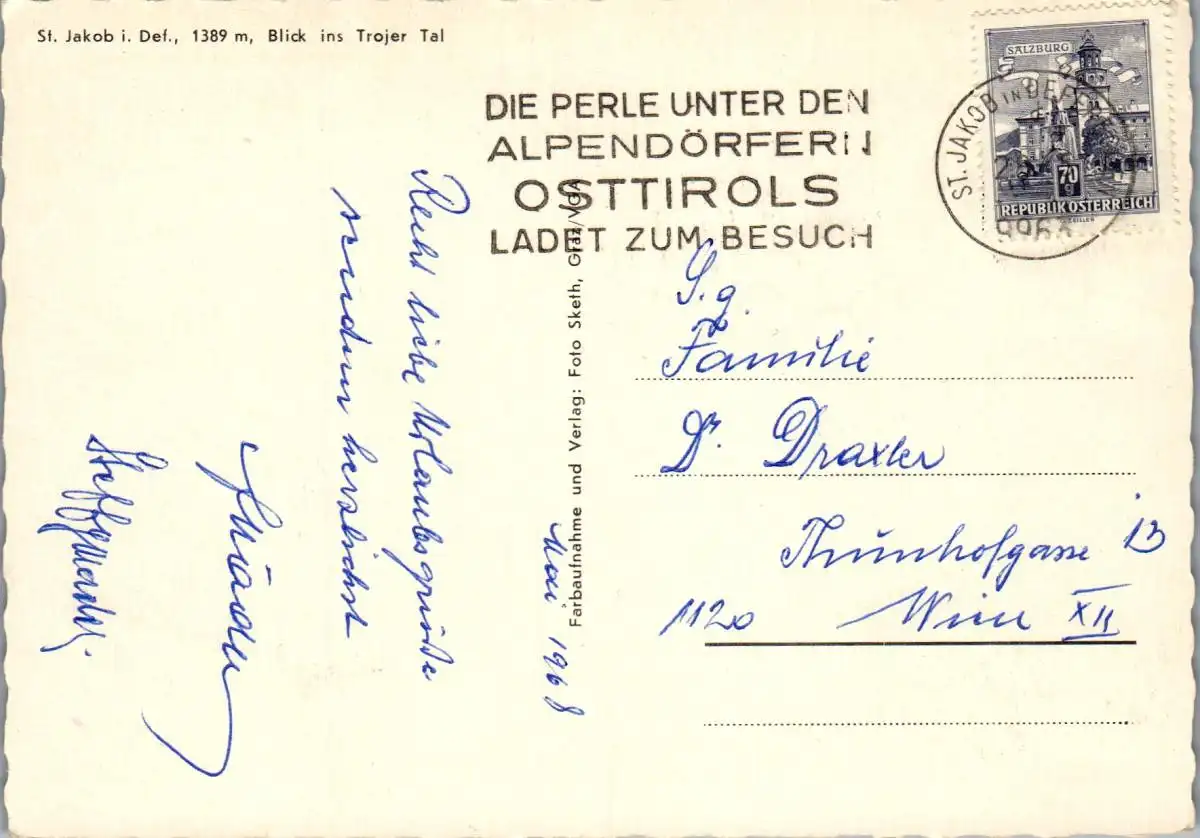 St. Jakob i. Def., 1389 m, Blick ins Trojer Tal
DIE PERLE UNTER DEN
ALPENDÖRFERN
OSTTIROLS
LADET ZUM BESUCH
SALZBURG
70
g
REPUBLIK ÖSTERREICH
ST. JAKOB IN DEFEREGGEN
Recht liebe Urlaubsgrüße
senden herzlichst
Mai 1968
Farbaufnahme und Verlag: Foto Sketh, Graz/VGA
S. g.
Familie
Dr. Draxler
Thunhofgasse 13
1120 Wien XII